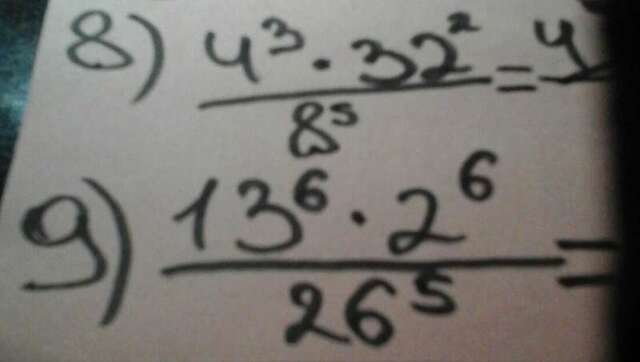 8) 4³ · 32² = 4
8⁵
9) 13⁶ · 2⁶ =
26⁵